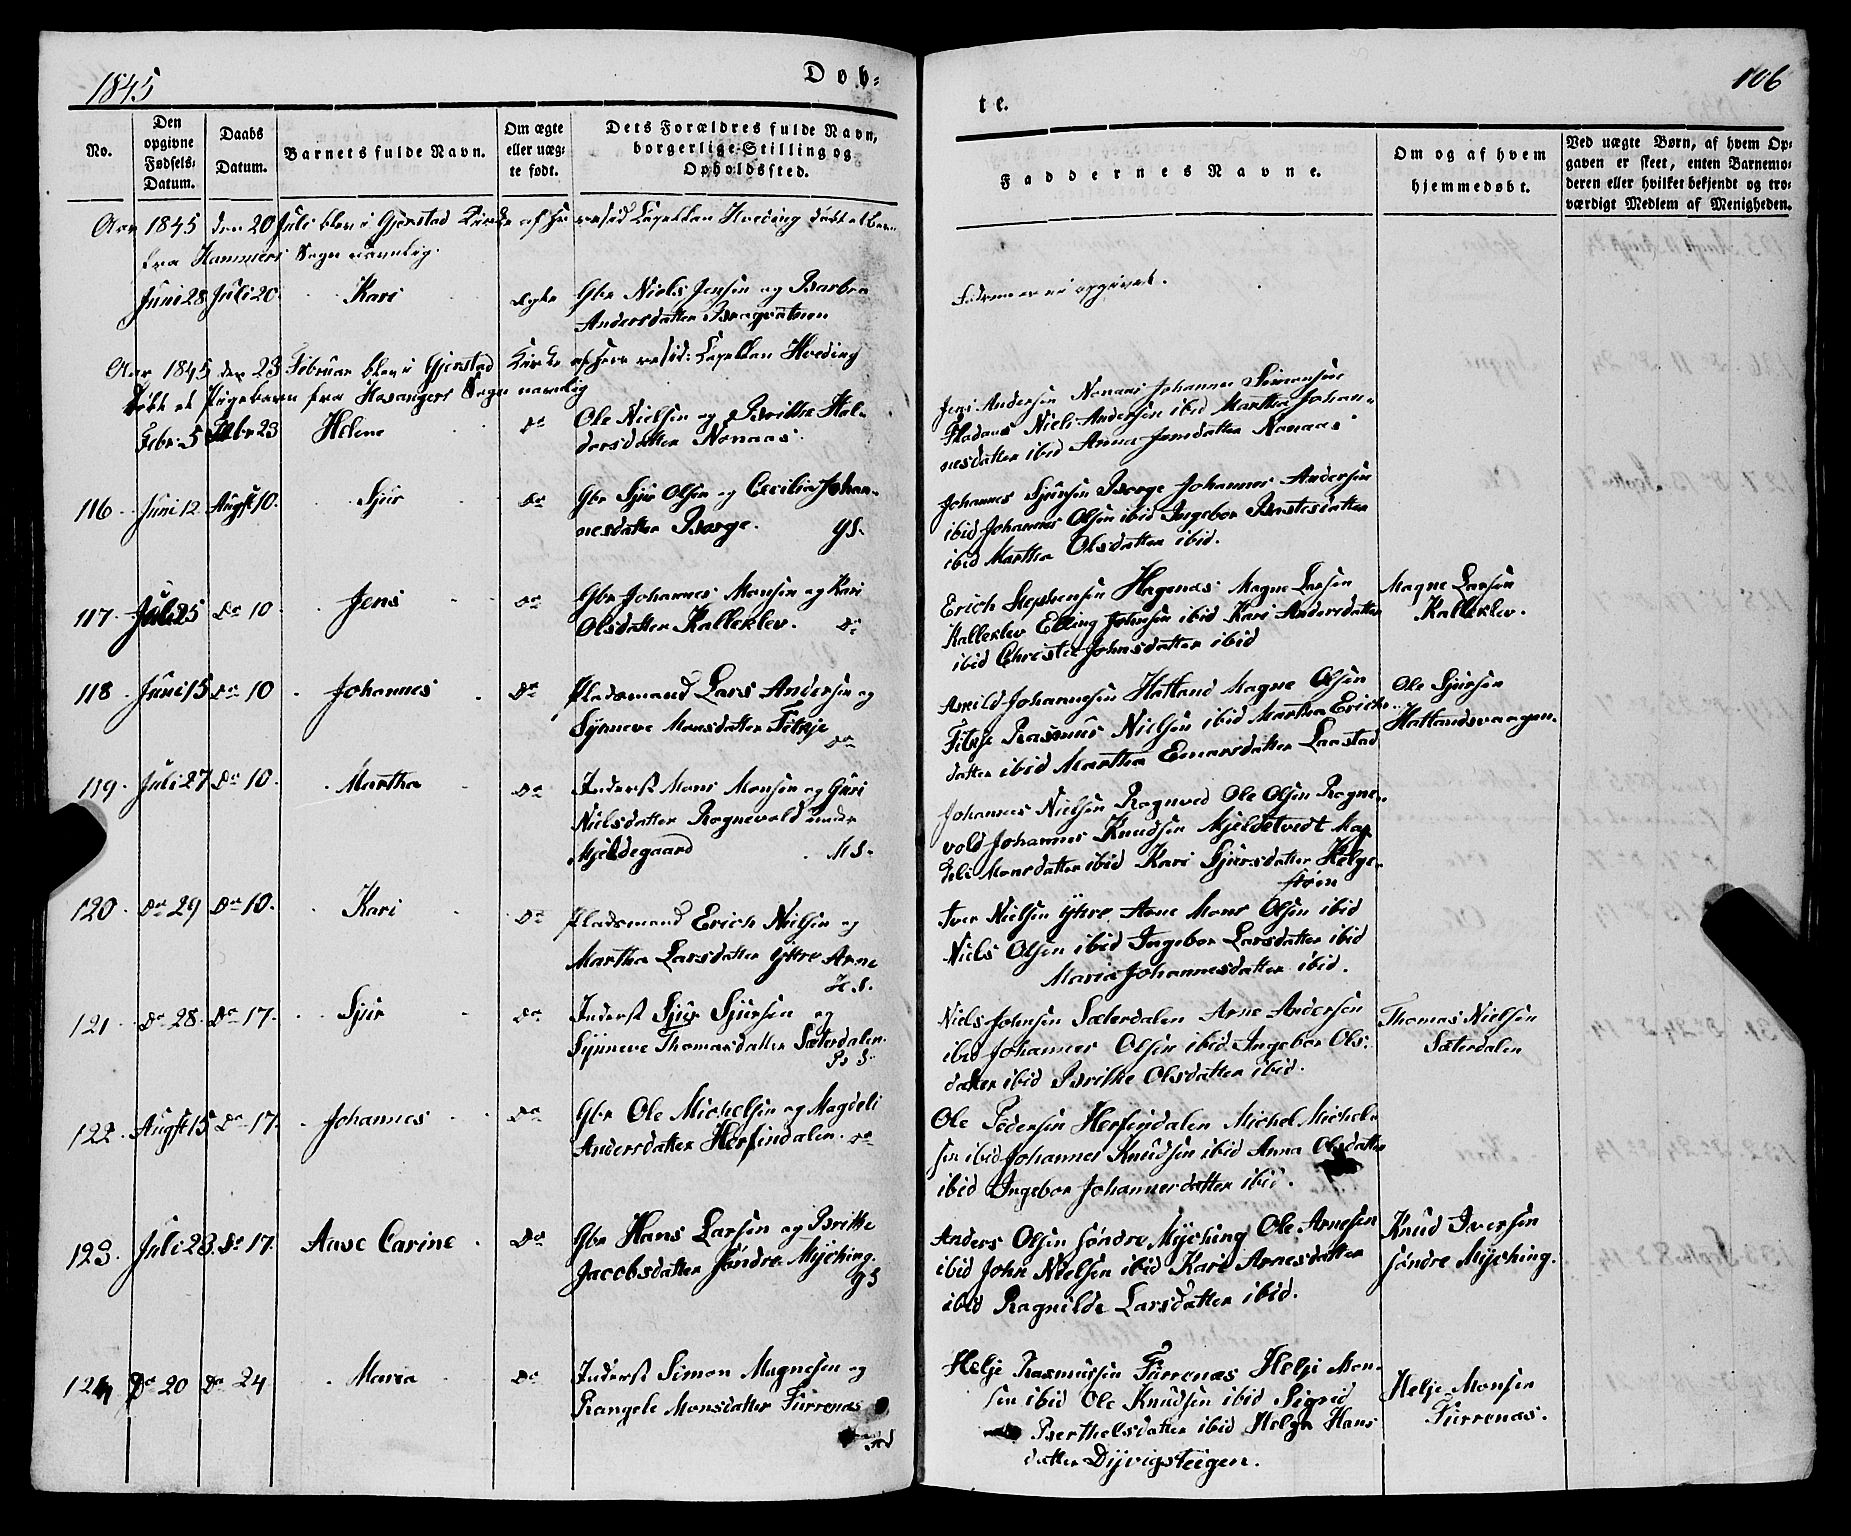 1845
Døb=
te.
106
No.
Den opgivne Fødsels-Datum.
Daabs Datum.
Barnets fulde Navn.
Om ægte eller uæg-te født.
Dets Forældres fulde Navn, borgerlige Stilling og Opholdssted.
Faddernes Navne.
Om og af hvem hjemmedøbt.
Ved uægte Børn, af hvem Op-gaven er skeet, enten Barnemo-deren eller hvilket bekjendt og tro-værdigt Medlem af Menigheden.
Aar 1845 den 20 Juli blev i Gjerstad Kirke af Hr resid Capellan Hveding døbt et Barn
fra Hammers Sogn navnlig.
Juni 28 Juli 20 Kari ægte Gbr Niels Jensen og Barbra
Andersdatter
opgivet.
Aar 1845 den 23 Februar blev i Gjerstad Kirke af Herr resid: Capellan Hveding
døbt et Pigebarn fra Hosangers Sogn navnlig
Febr. 5 Febr 23 Helene Do Ole Nielsen og Brithe Hal-
dorsdatter Nonaas.
Jens Andersen Nonaas Johannes Simonsen
Fladaas Niels Andersen ibid Martha Johan-
nesdatter ibid Anna Jensdatter Nonaas
116 Juni 12 Augst 10. Sjur Do Gbr Sjur Olsen og Cecilia Johan-
nesdatter Borge. GS.
Johannes Sjursen Borge Johannes Andersen
ibid Johannes Olsen ibid Ingebor
ibid Martha Olsdatter ibid.
117. Juli 25 Do 10 Jens Do Gbr Johannes Monsen og Kari
Olsdatter Kalleklev. Do
Erich Stephensen Hagenæs Magne Larsen
Kalleklev Elling Johnsen ibid Kari Andersdatter
ibid Christi Johnsdatter ibid
Magne Larsen
Kalleklev.
118 Juni 15 Do 10 Johannes Do Pladsmand Lars Andersen og
Synneve Monsdatter Fitzje
Do
Arnild Johannesen Hatland Magne Olsen
Fitzje Rasmus Nielsen ibid Martha Erichs-
datter ibid Martha Einarsdatter Laastad
Ole Sjursen
Hatlandsvaagen.
119. Juli 27 Do 10. Martha Do Inderst Mons Monsen og Guri
Nielsdatter Ragnevold under
Mjeldegaard MS.
Johannes Nielsen Ragnved Ole Olsen Ragne-
vold Johannes Knudsen Mjeldetvedt Mag-
deli Monsdatter ibid Kari Sjursdatter Helge-
støen
120. Do 29 Do 10. Kari Do Pladsmand Erich Nielsen og
Martha Larsdatter Yttre Arne
H.S.
Iver Nielsen Yttre Arne Mons Olsen ibid
Niels Olsen ibid Ingebor Larsdatter ibid
Maria Johannesdatter ibid.
121 Do 28. Do 17. Sjur Do Inderst Sjur Sjursen og
Synneve Thomasdatter Sæterdalen.
Niels Johnsen Sæterdalen Arne Andersen
ibid Johannes Olsen ibid Ingebor Ols-
datter ibid Brithe Olsdatter ibid.
Thomas Nielsen
Sæterdalen
122. Augst 15 Do 17. Johannes Do Gbr Ole Michelsen og Magdeli
Andersdatter Herfindalen. Do
Ole Pedersen Herfindalen Michel Michel-
sen ibid Johannes Knudsen ibid Anna Olsdatter
ibid Ingebor Johannesdatter ibid.
123. Juli 23. Do 17. Aase Carine Do Gbr Hans Larsen og Brithe
Jacobsdatter søndre Myching.
GS
Anders Olsen søndre Myching Ole Arnesen
ibid John Nielsen ibid Kari Arnesdatter
ibid Ragnilde Larsdatter ibid.
Knud Iversen
søndre Myching.
124 Do 20 Do 24 Maria Do Inderst Simon Magnesen og
Rangele Monsdatter Furrenæs
Helje Rasmusen Furrenæs Helje Mon-
sen ibid Ole Knudsen ibid Sigrid
Berthelsdatter ibid Helga Hans
datter Dyvigsteigen.
Helje Monsen
Furrenæs.